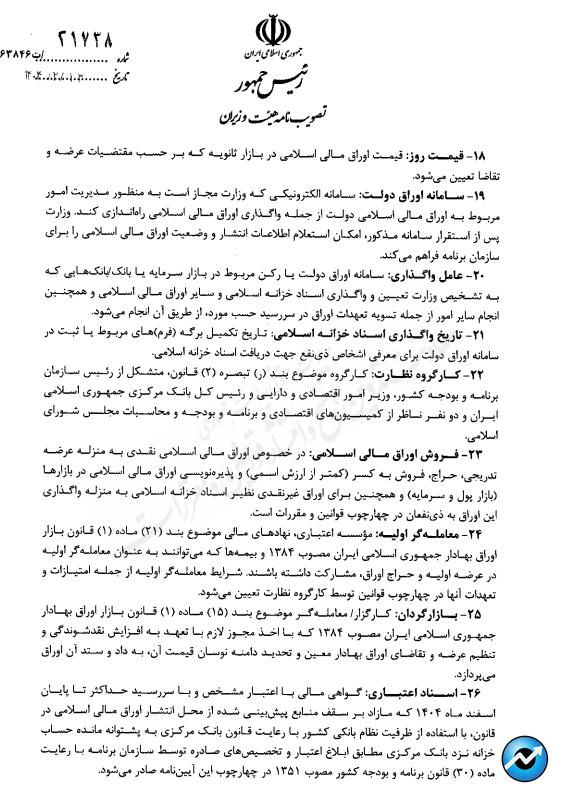 ۲۱۷۳۸
جمهوری اسلامی ایران
شماره ................. /ت۶۳۸۴۶
رئیس جمهور
تاریخ
تصویب نامه هیئت وزیران
۱۸- قیمت روز: قیمت اوراق مالی اسلامی در بازار ثانویه که بر حسب مقتضیات عرضه و
تقاضا تعیین می‌شود.
۱۹- سامانه اوراق دولت: سامانه الکترونیکی که وزارت مجاز است به منظور مدیریت امور
مربوط به اوراق مالی اسلامی دولت از جمله واگذاری اوراق مالی اسلامی راه‌اندازی کند. وزارت
پس از استقرار سامانه مذکور، امکان استعلام اطلاعات انتشار و وضعیت اوراق مالی اسلامی را برای
سازمان برنامه فراهم می‌کند.
۲۰- عامل واگذاری: سامانه اوراق دولت یا رکن مربوط در بازار سرمایه یا بانک/بانک‌هایی که
به تشخیص وزارت تعیین و واگذاری اسناد خزانه اسلامی و سایر اوراق مالی اسلامی و همچنین
انجام سایر امور از جمله تسویه تعهدات اوراق در سررسید حسب مورد، از طریق آن انجام می‌شود.
۲۱- تاریخ واگذاری اسناد خزانه اسلامی: تاریخ تکمیل برگه (فرم)های مربوط یا ثبت در
سامانه اوراق دولت برای معرفی اشخاص ذی‌نفع جهت دریافت اسناد خزانه اسلامی.
۲۲- کارگروه نظارت: کارگروه موضوع بند (ر) تبصره (۲) قانون، متشکل از رئیس سازمان
برنامه و بودجه کشور، وزیر امور اقتصادی و دارایی و رئیس کل بانک مرکزی جمهوری اسلامی
ایران و دو نفر ناظر از کمیسیون‌های اقتصادی و برنامه و بودجه و محاسبات مجلس شورای
اسلامی.
۲۳- فروش اوراق مالی اسلامی: در خصوص اوراق مالی اسلامی نقدی به منزله عرضه
تدریجی، حراج، فروش به کسر (کمتر از ارزش اسمی) و پذیره‌نویسی اوراق مالی اسلامی در بازارها
(بازار پول و سرمایه) و همچنین برای اوراق غیرنقدی نظیر اسناد خزانه اسلامی به منزله واگذاری
این اوراق به ذی‌نفعان در چهارچوب قوانین و مقررات است.
۲۴- معامله‌گر اولیه: مؤسسه اعتباری، نهادهای مالی موضوع بند (۲۱) ماده (۱) قانون بازار
اوراق بهادار جمهوری اسلامی ایران مصوب ۱۳۸۴ و بیمه‌ها که می‌توانند به عنوان معامله‌گر اولیه
در عرضه اولیه و حراج اوراق، مشارکت داشته باشند. شرایط معامله‌گر اولیه از جمله امتیازات و
تعهدات آنها در چهارچوب قوانین توسط کارگروه نظارت تعیین می‌شود.
۲۵- بازارگردان: کارگزار/ معامله‌گر موضوع بند (۱۵) ماده (۱) قانون بازار اوراق بهادار
جمهوری اسلامی ایران مصوب ۱۳۸۴ که با اخذ مجوز لازم با تعهد به افزایش نقدشوندگی و
تنظیم عرضه و تقاضای اوراق بهادار معین و تحدید دامنه نوسان قیمت آن، به داد و ستد آن اوراق
می‌پردازد.
۲۶- اسناد اعتباری: گواهی مالی با اعتبار مشخص و با سررسید حداکثر تا پایان
اسفند ماه ۱۴۰۴ که مازاد بر سقف منابع پیش‌بینی شده از محل انتشار اوراق مالی اسلامی در
قانون، با استفاده از ظرفیت نظام بانکی کشور با رعایت قانون بانک مرکزی به پشتوانه مانده حساب
خزانه نزد بانک مرکزی مطابق ابلاغ اعتبار و تخصیص‌های صادره توسط سازمان برنامه با رعایت
ماده (۳۰) قانون برنامه و بودجه کشور مصوب ۱۳۵۱ در چهارچوب این آیین‌نامه صادر می‌شود.